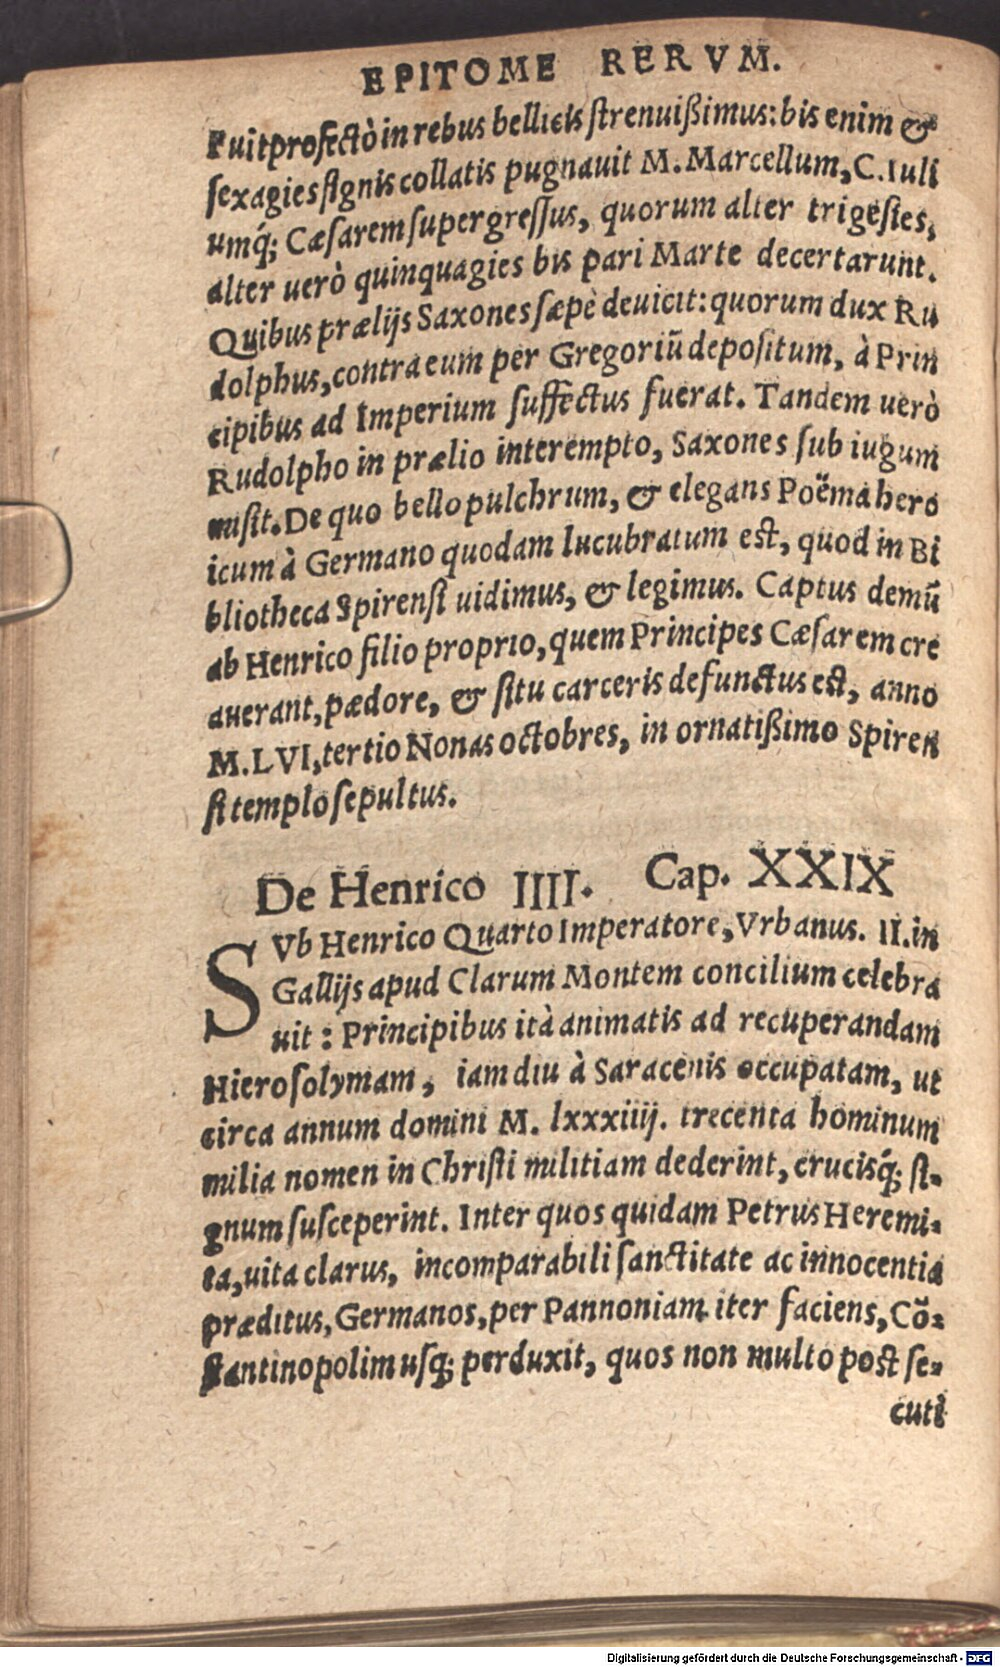 EPITOME RERVM.
Fuit profectò in rebus bellicis strenuißimus: bis enim &
sexagies signis collatis pugnauit M. Marcellum, C. Iuli
umq́; Cæsarem supergressus, quorum alter trigesies,
alter uerò quinquagies bis pari Marte decertarunt.
Quibus prælijs Saxones sæpè deuicit: quorum dux Ru
dolphus, contra eum per Gregoriũ depositum, à Prin
cipibus ad Imperium suffectus fuerat. Tandem uerò
Rudolpho in prælio interempto, Saxones sub iugum
misit. De quo bello pulchrum, & elegans Poëma hero
icum à Germano quodam lucubratum est, quod in Bi
bliotheca Spirensi uidimus, & legimus. Captus demũ
ab Henrico filio proprio, quem Principes Cæsarem cre
auerant, pædore, & situ carceris defunctus est, anno
M.LVI, tertio Nonas octobres, in ornatißimo Spiren
si templo sepultus.
De Henrico IIII. Cap. XXIX
SVb Henrico Quarto Imperatore, Vrbanus. II. in
Gallijs apud Clarum Montem concilium celebra
uit: Principibus ità animatis ad recuperandam
Hierosolymam, iam diu à Saracenis occupatam, ut
circa annum domini M. lxxxiiij. trecenta hominum
milia nomen in Christi militiam dederint, crucisq́; si-
gnum susceperint. Inter quos quidam Petrus Heremi-
ta, uita clarus, incomparabili sanctitate ac innocentia
præditus, Germanos, per Pannoniam iter faciens, Cõ-
stantinopolim usq; perduxit, quos non multo post se-
cuti
Digitalisierung gefördert durch die Deutsche Forschungsgemeinschaft - DFG